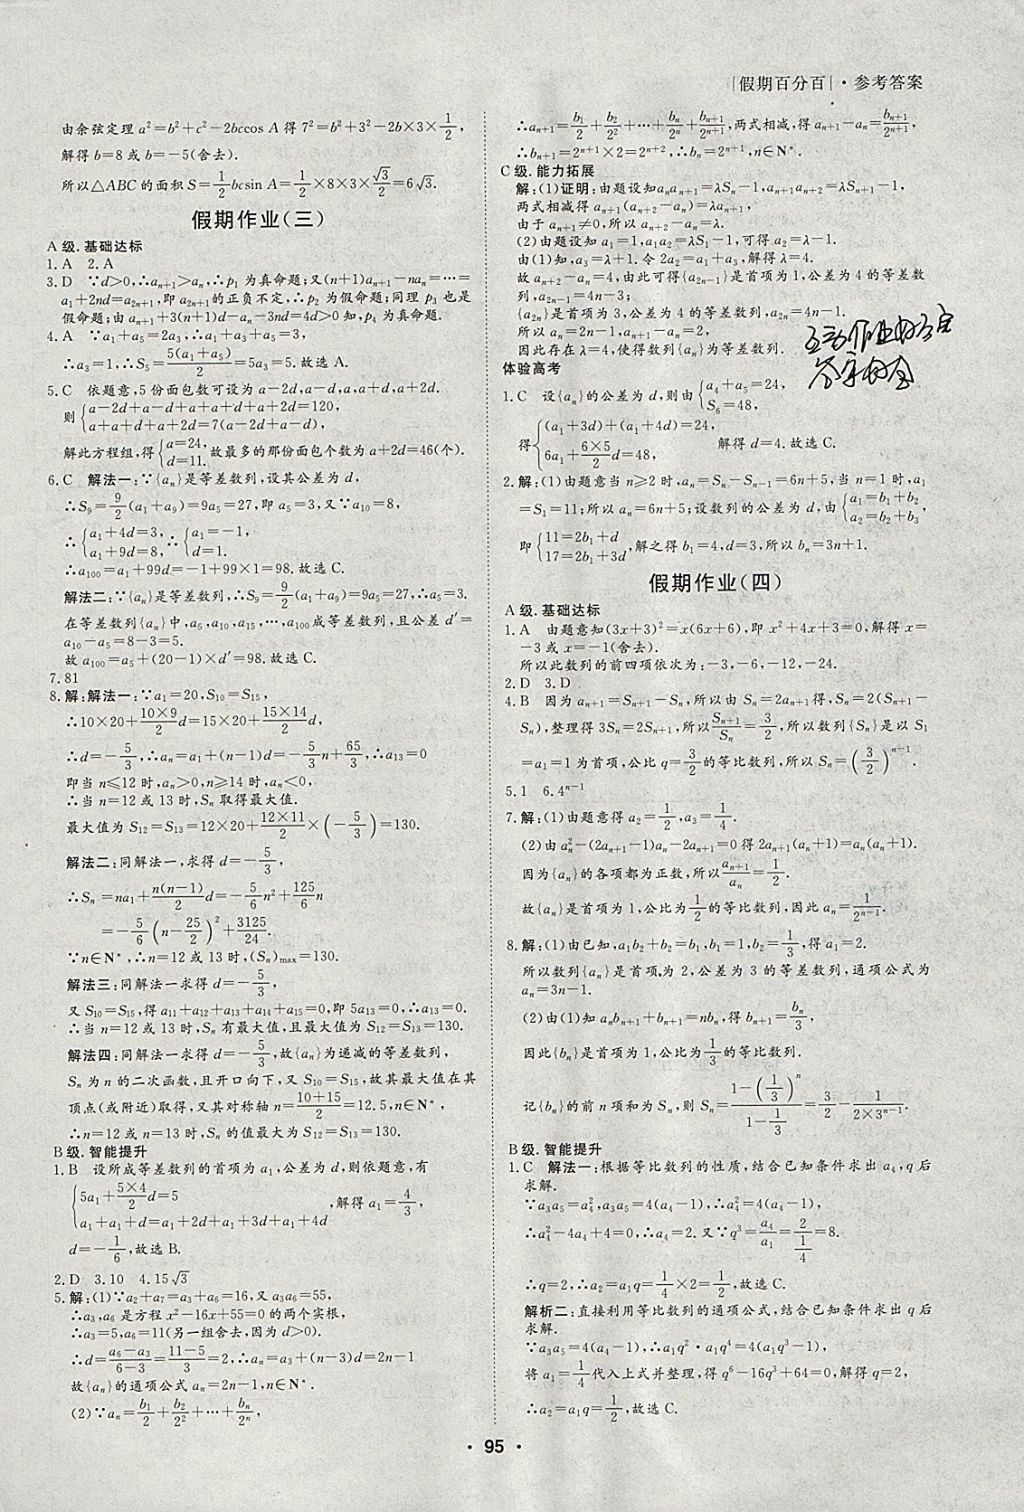 |假期百分百|·参考答案
由余弦定理 a²=b²+c²-2bccos A 得 7²=b²+3²-2b×3×1/2,
解得 b=8 或 b=-5(舍去).
所以△ABC 的面积 S=1/2 bcsin A=1/2×8×3×√3/2=6√3.
假期作业(三)
A 级.基础达标
1.A 2.A
3.D ∵d>0,∴aₙ₊₁>aₙ,∴p₁ 为真命题;又(n+1)aₙ₊₁-naₙ=…=
a₁+2nd=a₂ₙ₊₁,即 a₂ₙ₊₁的正负不定,∴p₂ 为假命题;同理 p₃ 也是
假命题;由 aₙ₊₁+3(n+1)d-aₙ-3nd=4d>0 知,p₄ 为真命题.
4.A ∵a₁+a₅=2a₃,∴a₁+a₃+a₅=3,
∴a₃=1,∴S₅=5(a₁+a₅)/2=5a₃=5.故选 A.
5.C 依题意,5 份面包数可设为 a-2d,a-d,a,a+d,a+2d.
则{a-2d+a-d+a+a+d+a+2d=120,
a+a+d+a+2d=7(a-2d+a-d),
解此方程组,得{a=24, d=11.故最多的那份面包个数为 a+2d=46(个).
6.C 解法一:∵{aₙ}是等差数列,设其公差为 d,
∴S₉=9/2(a₁+a₉)=9a₅=27,即 a₅=3,又∵a₁₀=8,
∴{a₁+4d=3, a₁+9d=8, ∴{a₁=-1, d=1.
∴a₁₀₀=a₁+99d=-1+99×1=98.故选 C.
解法二:∵{aₙ}是等差数列,∴S₉=9/2(a₁+a₉)=9a₅=27,∴a₅=3.
在等差数列{aₙ}中,a₅,a₁₀,a₁₅,…,a₁₀₀成等差数列,且公差 d′=
a₁₀-a₅=8-3=5.
故 a₁₀₀=a₅+(20-1)×d′=98.故选 C.
7.81
8.解:解法一:∵a₁=20,S₁₀=S₁₅,
∴10×20+(10×9)/2 d=15×20+(15×14)/2 d,
∴d=-5/3,∴aₙ=a₁+(n-1)d=-5/3 n+65/3,∴a₁₃=0
即当 n≤12 时,aₙ>0,n≥14 时,aₙ<0,
∴当 n=12 或 13 时,Sₙ 取得最大值.
最大值为 S₁₂=S₁₃=12×20+(12×11)/2×(-5/3)=130.
解法二:同解法一,求得 d=-5/3,
∴Sₙ=na₁+n(n-1)/2 d=-5/6 n²+125/6 n
=-5/6(n-25/2)²+3125/24.
∵n∈N*,∴n=12 或 13 时,(Sₙ)max=130.
解法三:同解法一求得 d=-5/3,
又 S₁₀=S₁₅,得 a₁₁+a₁₂+a₁₃+a₁₄+a₁₅=0,即 5a₁₃=0,∴a₁₃=0.
∴当 n=12 或 13 时,Sₙ 有最大值,且最大值为 S₁₂=S₁₃=130.
解法四:同解法一求得 d=-5/3,故{aₙ}为递减的等差数列,
Sₙ 为 n 的二次函数,且开口向下,又 S₁₀=S₁₅,故其最大值在其
顶点(或附近)取得,又其对称轴 n=(10+15)/2=12.5,n∈N*,
∴n=12 或 13 时,Sₙ 的值最大为 S₁₂=S₁₃=130.
B 级.智能提升
1.B 设所成等差数列的首项为 a₁,公差为 d,则依题意,有
{5a₁+(5×4)/2 d=5
a₁+a₁+d=a₁+2d+a₁+3d+a₁+4d ,解得 a₁=4/3,
d=-1/6,故选 B.
2.D 3.10 4.15√3
5.解:(1)∵a₂+a₇=a₃+a₆=16,又 a₃a₆=55,
∴a₃,a₆ 是方程 x²-16x+55=0 的两个实根,
∴a₃=5,a₆=11(另一组舍去,因为 d>0).
∴d=(a₆-a₃)/(6-3)=(11-5)/3=2,∴aₙ=a₃+(n-3)d=2n-1
故{aₙ}的通项公式 aₙ=2n-1,n∈N*.
(2)∵aₙ=b₁/2+b₂/2²+…+bₙ/2ⁿ,
∴aₙ₊₁=b₁/2+b₂/2²+…+bₙ/2ⁿ+bₙ₊₁/2ⁿ⁺¹,两式相减,得 aₙ₊₁-aₙ=bₙ₊₁/2ⁿ⁺¹,
∴bₙ₊₁=2ⁿ⁺¹×2=2ⁿ⁺²,∴bₙ=2ⁿ⁺¹,n∈N*.
C 级.能力拓展
解:(1)证明:由题设知aₙaₙ₊₁=λSₙ-1,aₙ₊₁aₙ₊₂=λSₙ₊₁-1,
两式相减得 aₙ₊₁(aₙ₊₂-aₙ)=λaₙ₊₁.
由于 aₙ₊₁≠0,所以 aₙ₊₂-aₙ=λ.
(2)由题设知 a₁=1,a₁a₂=λS₁-1,可得 a₂=λ-1.
由(1)知,a₃=λ+1.令 2a₂=a₁+a₃,解得 λ=4.
故 aₙ₊₂-aₙ=4,由此可得{a₂ₙ₋₁}是首项为 1,公差为 4 的等差数
列,a₂ₙ₋₁=4n-3;
{a₂ₙ}是首项为 3,公差为 4 的等差数列,a₂ₙ=4n-1.
所以 aₙ=2n-1,aₙ₊₁-aₙ=2,
因此存在 λ=4,使得数列{aₙ}为等差数列.
体验高考
1.C 设{aₙ}的公差为 d,则由{a₄+a₅=24, S₆=48,
得{(a₁+3d)+(a₁+4d)=24, 6a₁+(6×5)/2 d=48, 解得 d=4.故选 C.
2.解:(1)由题意当 n≥2 时,aₙ=Sₙ-Sₙ₋₁=6n+5,当 n=1 时,a₁
=S₁=11;所以 aₙ=6n+5;设数列的公差为 d,由{a₁=b₁+b₂ a₂=b₂+b₃,
即{11=2b₁+d 17=2b₁+3d,解之得 b₁=4,d=3,所以 bₙ=3n+1.
假期作业(四)
A 级.基础达标
1.A 由题意知(3x+3)²=x(6x+6),即 x²+4x+3=0,解得 x=
-3 或 x=-1(舍去).
所以此数列的前四项依次为:-3,-6,-12,-24.
2.D 3.D
4.B 因为 aₙ₊₁=Sₙ₊₁-Sₙ,所以由 Sₙ=2aₙ₊₁得,Sₙ=2(Sₙ₊₁-
Sₙ),整理得 3Sₙ=2Sₙ₊₁,所以Sₙ₊₁/Sₙ=3/2,所以数列{Sₙ}是以 S₁
=a₁=1 为首项,公比 q=3/2的等比数列,所以 Sₙ=(3/2)ⁿ⁻¹
5.1 6.4ⁿ⁻¹
7.解:(1)由题意得 a₂=1/2,a₃=1/4.
(2)由 aₙ²-(2aₙ₊₁-1)aₙ-2aₙ₊₁=0得 2aₙ₊₁(aₙ+1)=aₙ(aₙ+1).
因为{aₙ}的各项都为正数,所以aₙ₊₁/aₙ=1/2.
故{aₙ}是首项为 1,公比为1/2的等比数列,因此 aₙ=1/2ⁿ⁻¹.
8.解:(1)由已知,a₁b₂+b₂=b₁,b₁=1,b₂=1/3,得 a₁=2.
所以数列{aₙ}是首项为 2,公差为 3 的等差数列,通项公式为
aₙ=3n-1.
(2)由(1)知 aₙbₙ₊₁+bₙ₊₁=nbₙ,得 bₙ₊₁=bₙ/3,
因此{bₙ}是首项为 1,公比为1/3的等比数列.
记{bₙ}的前 n 项和为 Sₙ,则 Sₙ=(1-(1/3)ⁿ)/(1-1/3)=3/2-1/(2×3ⁿ⁻¹).
B 级.智能提升
1.C 解法一:根据等比数列的性质,结合已知条件求出 a₄,q 后
求解.
∵a₃a₅=a₄²,a₃a₅=4(a₄-1),∴a₄²=4(a₄-1),
∴a₄²-4a₄+4=0,∴a₄=2.又∵q³=a₄/a₁=2/(1/4)=8.
∴q=2,∴a₂=a₁q=1/4×2=1/2,故选 C.
解析二:直接利用等比数列的通项公式,结合已知条件求出 q 后
求解.
∵a₃a₅=4(a₄-1),∴a₁q²·a₁q⁴=4(a₁q³-1),
将 a₁=1/4代入上式并整理,得 q⁶-16q³+64=0,解得 q=2,
∴a₂=a₁q=1/2,故选 C.
·95·